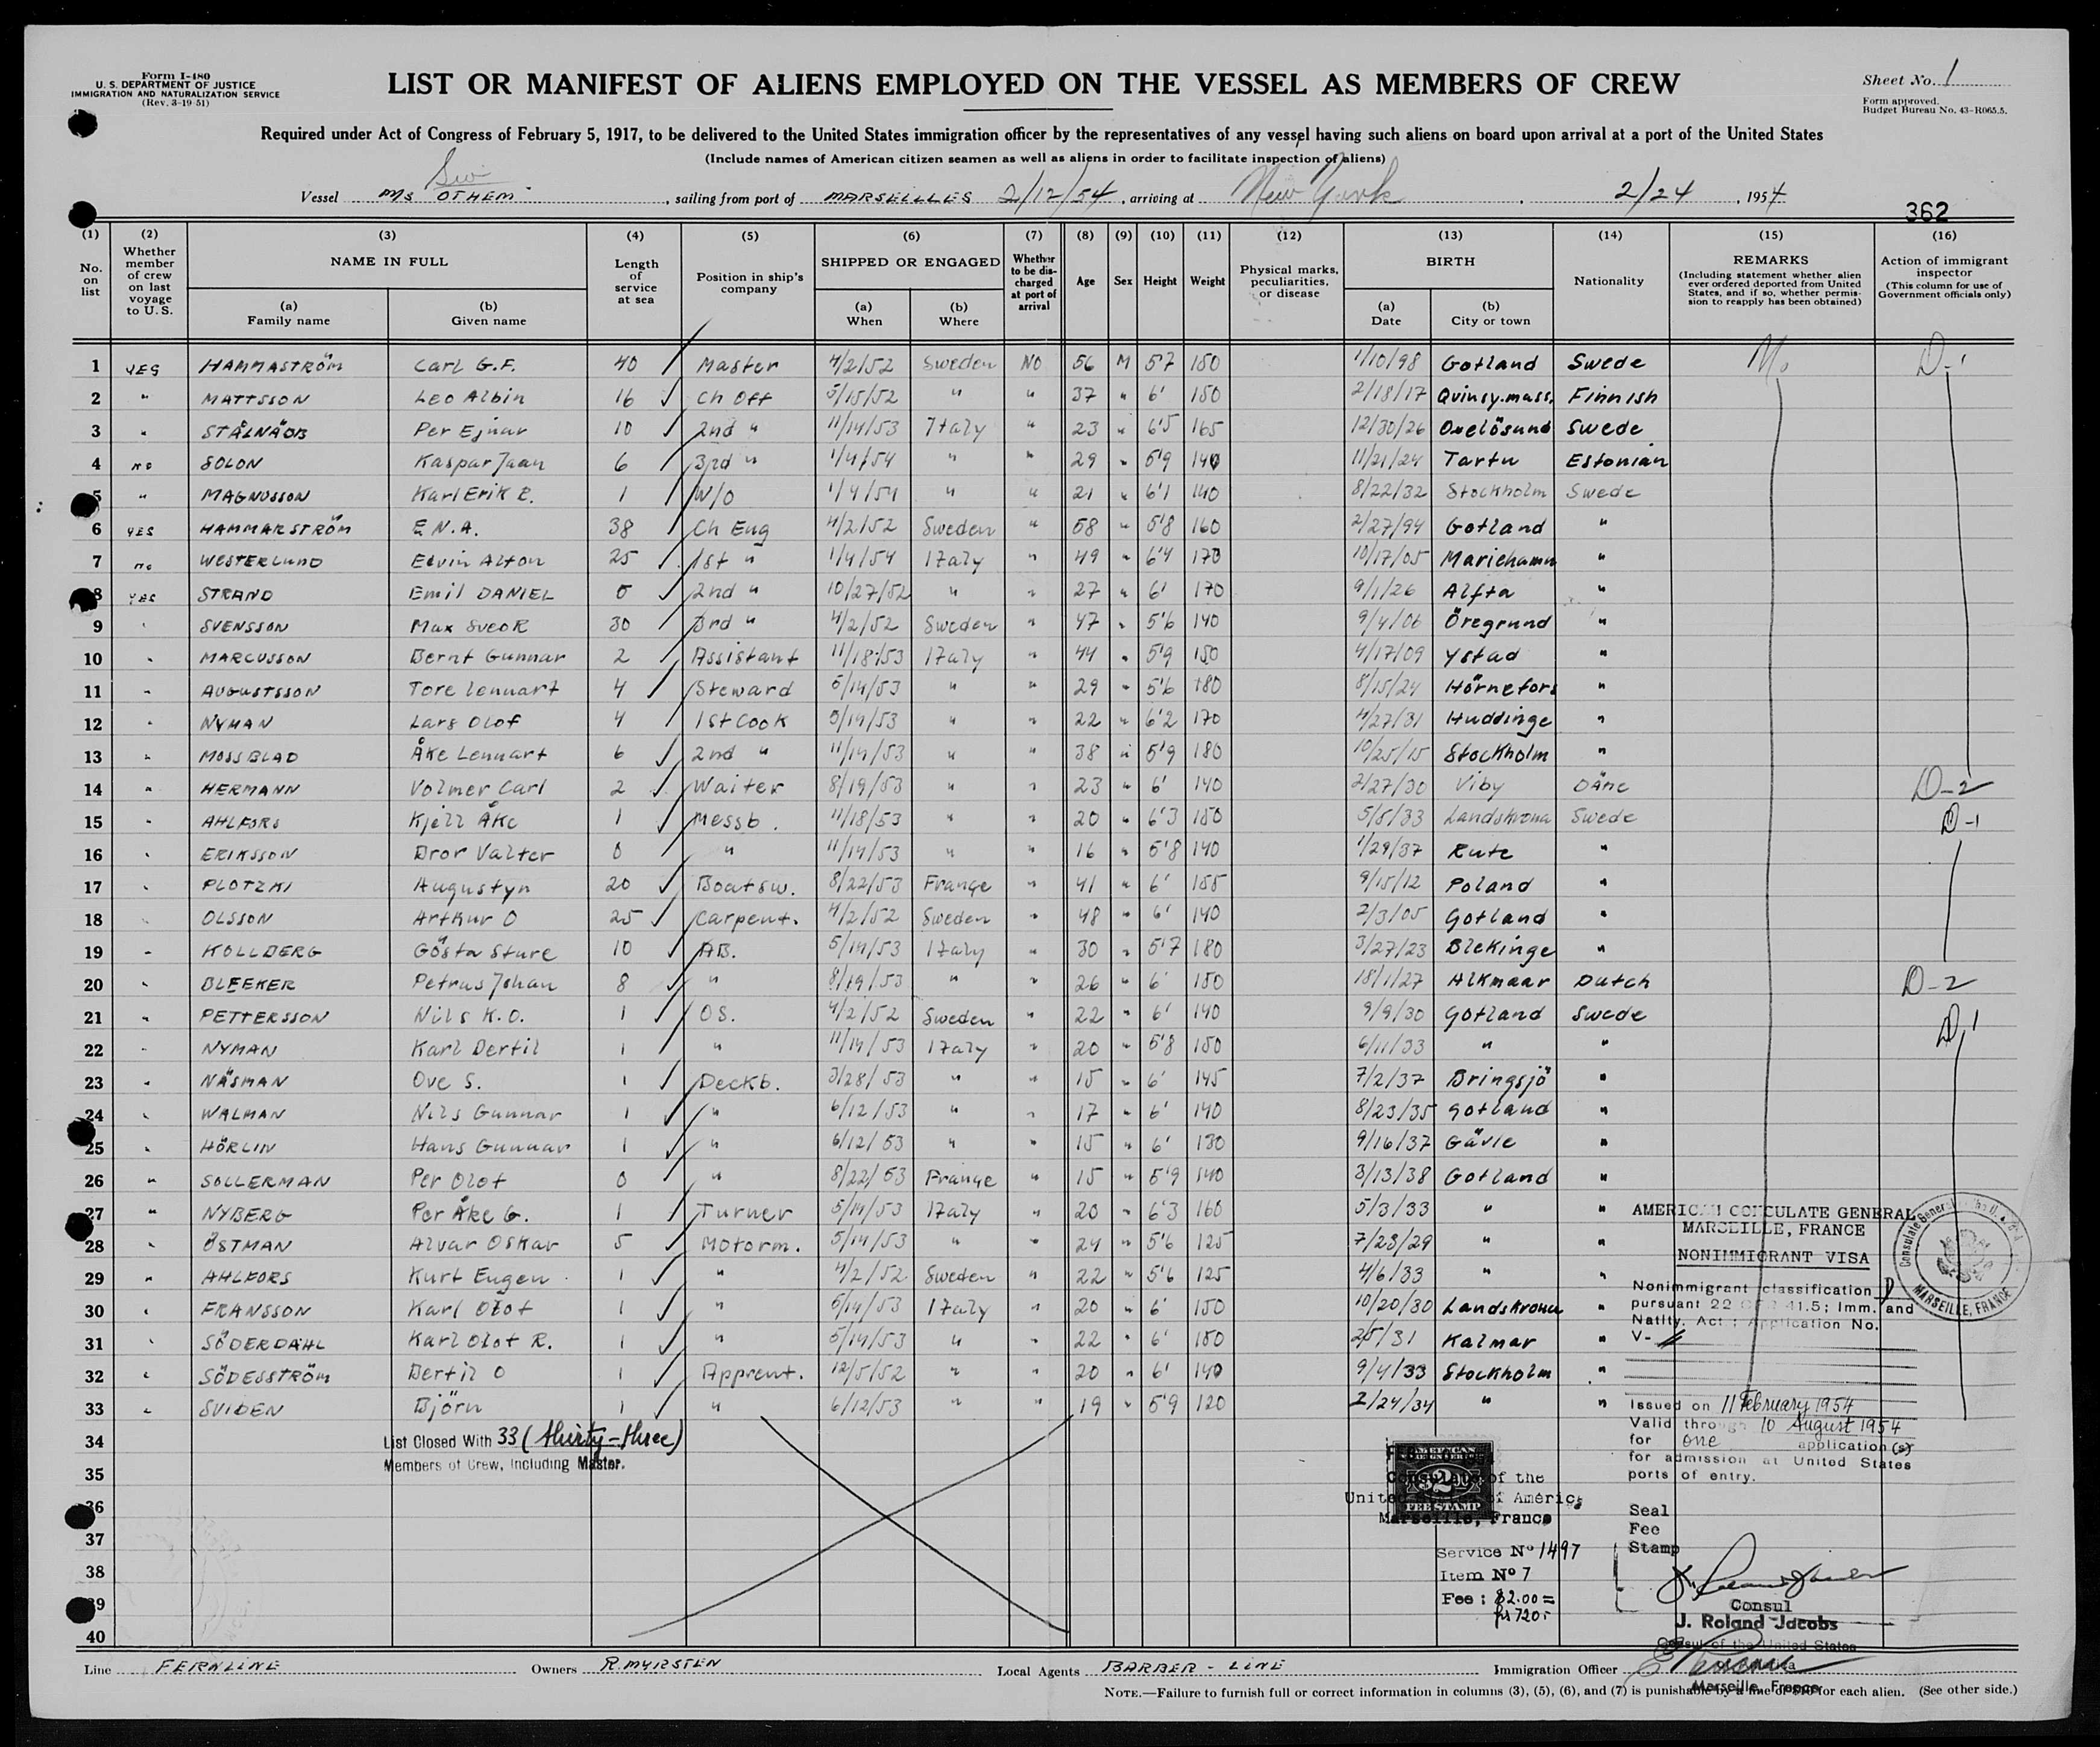 Form I-480
U. S. DEPARTMENT OF JUSTICE
IMMIGRATION AND NATURALIZATION SERVICE
(Rev. 3-19-51)
LIST OR MANIFEST OF ALIENS EMPLOYED ON THE VESSEL AS MEMBERS OF CREW
Sheet No. 1
Form approved.
Budget Bureau No. 43-R065.5.
Required under Act of Congress of February 5, 1917, to be delivered to the United States immigration officer by the representatives of any vessel having such aliens on board upon arrival at a port of the United States
(Include names of American citizen seamen as well as aliens in order to facilitate inspection of aliens)
Sw
Vessel M/S OTHEM, sailing from port of MARSEILLES 2/12/54, arriving at New York, 2/24, 1954
362
(1) No. on list
(2) Whether member of crew on last voyage to U. S.
(3) NAME IN FULL (a) Family name (b) Given name
(4) Length of service at sea
(5) Position in ship's company
(6) SHIPPED OR ENGAGED (a) When (b) Where
(7) Whether to be discharged at port of arrival
(8) Age
(9) Sex
(10) Height
(11) Weight
(12) Physical marks, peculiarities, or disease
(13) BIRTH (a) Date (b) City or town
(14) Nationality
(15) REMARKS (Including statement whether alien ever ordered deported from United States, and if so, whether permission to reapply has been obtained)
(16) Action of immigrant inspector (This column for use of Government officials only)
1 YES HAMMASTRÖM Carl G.F. 40 Master 4/2/52 Sweden NO 56 M 5'7 150 1/10/98 Gotland Swede No D-1
2 " MATTSSON Leo Albin 16 Ch Off 5/15/52 " " 37 " 6' 150 2/18/17 Quinsy.mass. Finnish
3 " Per Ejnar 10 2nd " 11/14/53 Italy " 23 " 6'5 165 12/30/26 Oxelösund Swede
4 no SOLON Kaspar Jaan 6 3rd " 1/4/54 " " 29 " 5'9 140 11/21/24 Tartu Estonian
5 " MAGNUSSON Karl Erik E. 1 W/O 1/4/54 " " 21 " 6'1 140 8/22/32 Stockholm Swede
6 YES HAMMARSTRÖM E.N.A. 38 Ch Eng 4/2/52 Sweden " 58 " 5'8 160 2/27/94 Gotland "
7 no WESTERLUND Edvin Alfon 25 1st " 1/4/54 Italy " 49 " 6'4 170 10/17/05 Mariehamn "
8 YES STRAND Emil DANIEL 5 2nd " 10/27/52 " " 27 " 6' 170 9/1/26 Alfta "
9 " SVENSSON Max 30 3rd " 4/2/52 Sweden " 47 " 5'6 140 9/4/06 Öregrund "
10 " MARCUSSON Bernt Gunnar 2 Assistant 11/18/53 Italy " 44 " 5'9 150 4/17/09 Ystad "
11 " AUGUSTSSON Tore Lennart 4 Steward 5/14/53 " " 29 " 5'6 180 8/15/24 Hörnefors "
12 " NYMAN Lars Olof 4 1st Cook 5/19/53 " " 22 " 6'2 170 4/27/31 Huddinge "
13 " MOSSBLAD Åke Lennart 6 2nd " 11/14/53 " " 38 " 5'9 180 10/25/15 Stockholm "
14 " HERMANN Volmer Carl 2 Waiter 8/19/53 " " 23 " 6' 140 2/27/30 Viby DANE D-2
15 " AHLFORS Kjell Åke 1 Messb. 11/18/53 " " 20 " 6'3 150 5/5/33 Landskrona Swede D-1
16 " ERIKSSON Bror Valter 0 " 11/14/53 " " 16 " 5'8 140 1/29/37 Rute "
17 " PLOTZKI Augustyn 20 Boatsw. 8/22/53 France " 41 " 6' 155 9/15/12 Poland "
18 " OLSSON Arthur O 25 Carpent. 4/2/52 Sweden " 48 " 6' 140 2/3/05 Gotland "
19 " KOLLBERG Gösta Sture 10 AB. 5/14/53 Italy " 30 " 5'7 180 3/27/23 Blekinge "
20 " BLEEKER Petrus Johan 8 " 8/19/53 " " 26 " 6' 150 18/1/27 Alkmaar Dutch D-2
21 " PETTERSSON Nils K.O. 1 OS. 4/2/52 Sweden " 22 " 6' 140 9/9/30 Gotland Swede D-1
22 " NYMAN Karl Bertil 1 " 11/14/53 Italy " 20 " 5'8 150 6/11/33 " "
23 " NÄSMAN Ove S. 1 Deckb. 3/28/53 " " 15 " 6' 145 7/2/37 Bringsjö "
24 " WALMAN Nils Gunnar 1 " 6/12/53 " " 17 " 6' 140 8/23/35 Gotland "
25 " HÖRLIN Hans Gunnar 1 " 6/12/53 " " 15 " 6' 130 9/16/37 Gävle "
26 " SOLLERMAN Per Olof 0 " 8/22/53 France " 15 " 5'9 140 3/13/38 Gotland "
27 " NYBERG Per Åke G. 1 Turner 5/14/53 Italy " 20 " 6'3 160 5/3/33 " "
28 " ÖSTMAN Alvar Oskar 5 Motorm. 5/14/53 " " 24 " 5'6 125 7/23/29 " "
29 " AHLFORS Kurt Eugen 1 " 4/2/52 Sweden " 22 " 5'6 125 4/6/33 " "
30 " FRANSSON Karl Olof 1 " 5/14/53 Italy " 20 " 6' 150 10/20/30 Landskrona "
31 " SÖDERDAHL Karl Olof R. 1 " 5/14/53 " " 22 " 6' 150 2/5/31 Kalmar "
32 " SÖDESSTRÖM Bertil O 1 Apprent. 12/5/52 " " 20 " 6' 140 9/4/33 Stockholm "
33 " SVIDEN Björn 1 " 6/12/53 " " 19 " 5'9 120 2/24/34 " "
34
35
36
37
38
39
40
List Closed With 33 (thirty-three)
Members of Crew, Including Master.
AMERICAN CONSULATE GENERAL
MARSEILLE, FRANCE
NONIMMIGRANT VISA
Nonimmigrant classification D
pursuant 22 CFR 41.5; Imm. and
Natlty. Act; Application No.
V-
Issued on 11 February 1954
Valid through 10 August 1954
for one application(s)
for admission at United States
ports of entry.
MARSEILLE, FRANCE
AMERICAN
FOREIGN SERVICE
$2
FEE STAMP
Consulate of the
United States of America
Marseille, France
Service No 1497
Item No 7
Fee: $2.00=
frs 720.-
Seal
Fee
Stamp
Consul
J. Roland Jacobs
Consul of the United States
Marseille, France
Line FERNLINE Owners R. MYRSTEN Local Agents BARBER - LINE Immigration Officer
NOTE.—Failure to furnish full or correct information in columns (3), (5), (6), and (7) is punishable by a fine of $10 for each alien. (See other side.)